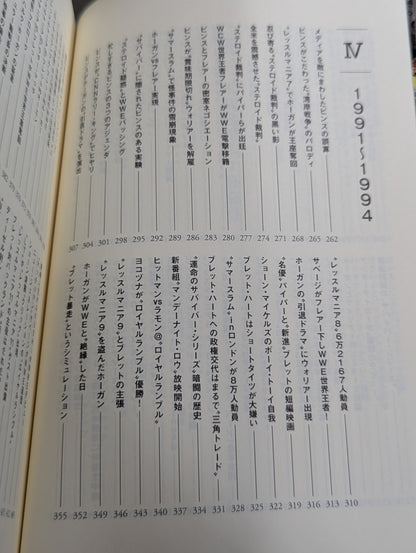 Ⅳ 1991〜1994
メディアを敵にまわしたビンスの誤算 262
ビンスがこだわった“湾岸戦争”のパロディ 265
“レッスルマニア7”でホーガンが王座奪回 268
忍び寄る“ステロイド裁判”の黒い影 271
全米を震撼させた“ステロイド裁判” 274
“ステロイド裁判”にパイパーらが出廷 277
WCW世界王者フレアーがWWE電撃移籍 280
ビンスとフレアーの密室ネゴシエーション 283
ビンスが“賞味期限切れ”ウォリアーを解雇 286
“サマースラム”で怪事件の雪崩現象 289
ホーガンvsフレアー実現 292
“サバイバー”に隠されたビンスのある実験 295
“ステロイド疑惑”とWWEバッシング 298
忙しすぎるビンスの3つのアジェンダ 301
ビンスが、CNN“ラリー・キング”でヒヤリ 304
“引退ドラマ”を演出 307
“レッスルマニア8”6万2167人動員 310
サベージがフレアー下しWWE世界王者！ 313
ホーガンの“引退ドラマ”にウォリアー出現 316
“名優”パイパーと“新進”ブレットの短編映画 319
ショーン・マイケルズのボーイ・トーイ自我 322
ブレット・ハートはショートタイツが大嫌い 325
“サマースラム”inロンドンが8万人動員 328
ブレット・ハートへの政権交代はまるで“三角トレード” 331
“運命のサバイバー・シリーズ”暗闇の歴史 334
新番組“マンデーナイト・ロウ”放映開始 337
ヒットマンvsラモン@“ロイヤルランブル” 340
ヨコヅナが“ロイヤルランブル”優勝！ 343
“レッスルマニア9”とブレットの主張 346
“レッスルマニア9”を盗んだホーガン 349
ホーガンがWWEと“絶縁”した日 352
“ブレット暴走”というシミュレーション 355